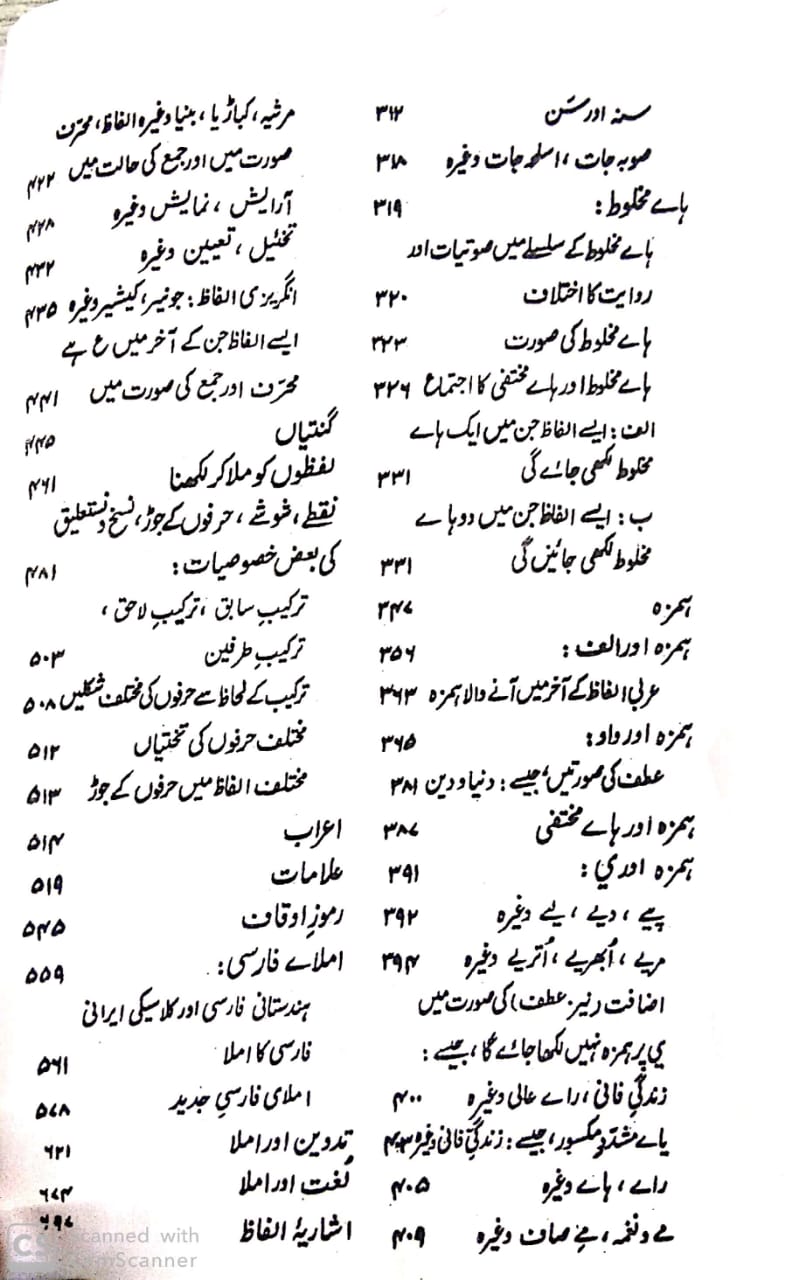 سنہ اور سَن ۳۱۷
صوبہ جات، اسلحہ جات وغیرہ ۳۱۸
ہاے مخلوط: ۳۱۹
ہاے مخلوط کے سلسلے میں صوتیات اور
روایت کا اختلاف ۳۲۰
ہاے مخلوط کی صورت ۳۲۳
ہاے مخلوط اور ہاے مختفی کا اجتماع ۳۲۶
الف: ایسے الفاظ جن میں ایک ہاے
مخلوط لکھی جائے گی ۳۳۱
ب: ایسے الفاظ جن میں دو ہاے
مخلوط لکھی جائیں گی ۳۳۱
ہمزہ ۳۴۷
ہمزہ اور الف: ۳۵۶
عربی الفاظ کے آخر میں آنے والا ہمزہ ۳۶۳
ہمزہ اور واو: ۳۶۵
عطف کی صورتیں، جیسے: دنیا و دین ۳۸۱
ہمزہ اور ہاے مختفی ۳۸۷
ہمزہ اور ي: ۳۹۱
پیے، دیے، لیے وغیرہ ۳۹۲
مریے، اُبھریے، اُتریے وغیرہ ۳۹۴
اضافت (نیز عطف) کی صورت میں
ي پر ہمزہ نہیں لکھا جائے گا، جیسے:
زندگیِ فانی، راے عالی وغیرہ ۴۰۰
یاے مشدّدِ مکسور، جیسے: زندگیِّ فانی وغیرہ ۴۰۳
راے، ہاے وغیرہ ۴۰۵
مے و نغمہ، مےِ صاف وغیرہ ۴۰۹
مرثیہ، کباڑیا، بنیا وغیرہ الفاظ، محرّف
صورت میں اور جمع کی حالت میں ۴۲۲
آرایش، نمایش وغیرہ ۴۲۸
تخئیل، تعیین وغیرہ ۴۳۲
انگریزی الفاظ: جونیر، کیشیر وغیرہ ۴۳۵
ایسے الفاظ جن کے آخر میں ع ہے
محرّف اور جمع کی صورت میں ۴۴۱
گنتیاں ۴۴۵
لفظوں کو ملا کر لکھنا ۴۶۱
نقطے، شوشے، حرفوں کے جوڑ، نسخ و نستعلیق
کی بعض خصوصیات: ۴۸۱
ترکیبِ سابق، ترکیبِ لاحق،
ترکیبِ طرفین ۵۰۳
ترکیب کے لحاظ سے حرفوں کی مختلف شکلیں ۵۰۸
مختلف حرفوں کی تختیاں ۵۱۲
مختلف الفاظ میں حرفوں کے جوڑ ۵۱۳
اعراب ۵۱۴
علامات ۵۱۹
رموزِ اوقاف ۵۴۵
املاے فارسی: ۵۵۹
ہندستانی فارسی اور کلاسیکی ایرانی
فارسی کا املا ۵۶۱
املای فارسیِ جدید ۵۷۸
تدوین اور املا ۶۲۱
لُغت اور املا ۶۷۴
اشاریۂ الفاظ ۶۹۷
CS Scanned with
CamScanner